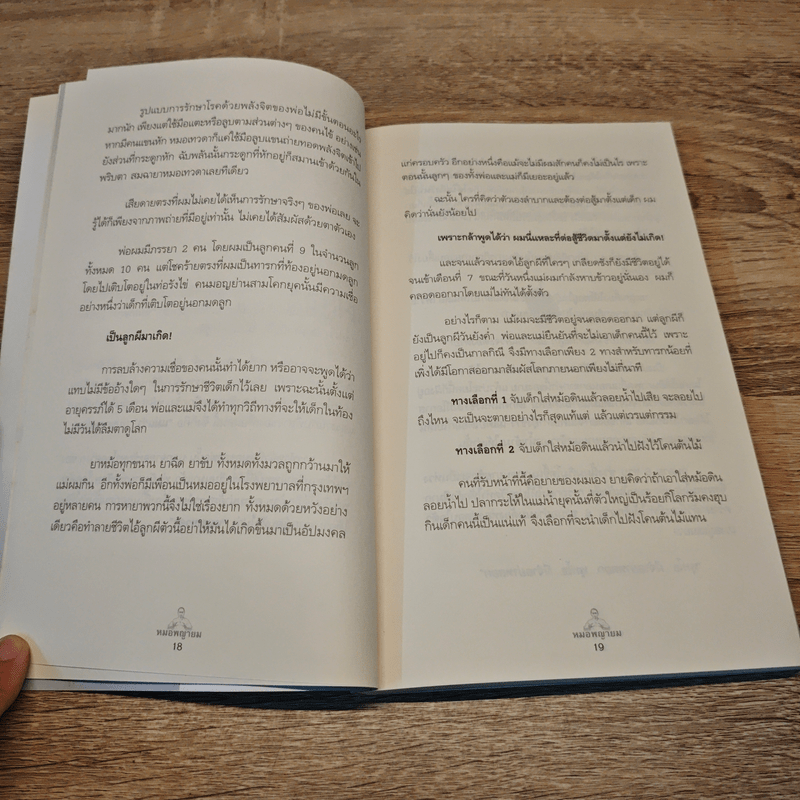 รูปแบบการรักษาโรคด้วยพลังจิตของพ่อไม่มีขั้นตอนอะไร
มากนัก เพียงแต่ใช้มือแตะหรือลูบตามส่วนต่างๆ ของคนไข้ อย่างเช่น
หากมีคนแขนหัก หมอเทวดาก็แค่ใช้มือลูบแขนถ่ายทอดพลังจิตเข้าไป
ยังส่วนที่กระดูกหัก ฉับพลันนั้นกระดูกที่หักอยู่ก็สมานเข้าด้วยกันใน
พริบตา สมฉายาหมอเทวดาเลยทีเดียว
เสียดายตรงที่ผมไม่เคยได้เห็นการรักษาจริงๆ ของพ่อเลย จะ
รู้ได้ก็เพียงจากภาพถ่ายที่มีอยู่เท่านั้น ไม่เคยได้สัมผัสด้วยตาตัวเอง
พ่อผมมีภรรยา 2 คน โดยผมเป็นลูกคนที่ 9 ในจำนวนลูก
ทั้งหมด 10 คน แต่โชคร้ายตรงที่ผมเป็นทารกที่ท้องอยู่นอกมดลูก
โดยไปเติบโตอยู่ในท่อรังไข่ คนมอญย่านสามโคกยุคนั้นมีความเชื่อ
อย่างหนึ่งว่าเด็กที่เติบโตอยู่นอกมดลูก
เป็นลูกผีมาเกิด!
การลบล้างความเชื่อของคนนั้นทำได้ยาก หรืออาจจะพูดได้ว่า
แทบไม่มีข้ออ้างใดๆ ในการรักษาชีวิตเด็กไว้เลย เพราะฉะนั้นตั้งแต่
อายุครรภ์ได้ 5 เดือน พ่อและแม่จึงได้ทำทุกวิถีทางที่จะให้เด็กในท้อง
ไม่มีวันได้ลืมตาดูโลก
ยาหม้อทุกขนาน ยาฉีด ยาขับ ทั้งหมดทั้งมวลถูกกว้านมาให้
แม่ผมกิน อีกทั้งพ่อก็มีเพื่อนเป็นหมออยู่ในโรงพยาบาลที่กรุงเทพฯ
อยู่หลายคน การหายาพวกนี้จึงไม่ใช่เรื่องยาก ทั้งหมดด้วยหวังอย่าง
เดียวคือทำลายชีวิตไอ้ลูกผีตัวนี้อย่าให้มันได้เกิดขึ้นมาเป็นอัปมงคล
หมอพญายม
18
แก่ครอบครัว อีกอย่างหนึ่งคือแม้จะไม่มีผมสักคนก็คงไม่เป็นไร เพราะ
ตอนนั้นลูกๆ ของทั้งพ่อและแม่ก็มีเยอะอยู่แล้ว
ฉะนั้น ใครที่คิดว่าตัวเองลำบากและต้องต่อสู้มาตั้งแต่เด็ก ผม
คิดว่านั่นยังน้อยไป
เพราะกล้าพูดได้ว่า ผมนี่แหละที่ต่อสู้ชีวิตมาตั้งแต่ยังไม่เกิด!
และจนแล้วจนรอดไอ้ลูกผีที่ใครๆ เกลียดชังก็ยังมีชีวิตอยู่ได้
จนเข้าเดือนที่ 7 ขณะที่วันหนึ่งแม่ผมกำลังหาบข้าวอยู่นั่นเอง ผมก็
คลอดออกมาโดยแม่ไม่ทันได้ตั้งตัว
อย่างไรก็ตาม แม้ผมจะมีชีวิตอยู่จนคลอดออกมา แต่ลูกผีก็
ยังเป็นลูกผีวันยังค่ำ พ่อและแม่ยืนยันที่จะไม่เอาเด็กคนนี้ไว้ เพราะ
อยู่ไปก็คงเป็นกาลกิณี จึงมีทางเลือกเพียง 2 ทางสำหรับทารกน้อยที่
เพิ่งได้มีโอกาสออกมาสัมผัสโลกภายนอกเพียงไม่กี่นาที
ทางเลือกที่ 1 จับเด็กใส่หม้อดินแล้วลอยน้ำไปเสีย จะลอยไป
ถึงไหน จะเป็นจะตายอย่างไรก็สุดแท้แต่ แล้วแต่เวรแต่กรรม
ทางเลือกที่ 2 จับเด็กใส่หม้อดินแล้วนำไปฝังไว้โคนต้นไม้
คนที่รับหน้าที่นี้คือยายของผมเอง ยายคิดว่าถ้าเอาใส่หม้อดิน
ลอยน้ำไป ปลากระโห้ในแม่น้ำยุคนั้นที่ตัวใหญ่เป็นร้อยกิโลกรัมคงฮุบ
กินเด็กคนนี้เป็นแน่แท้ จึงเลือกที่จะนำเด็กไปฝังโคนต้นไม้แทน
หมอพญายม
19